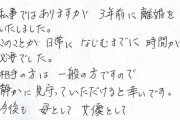 私事ではありますが 3年前に離婚を
いたしました。
このことが 日常に なじむまでに 時間が
必要でした。
相手の方は 一般の方ですので
静かに見守っていただけると幸いです。
今後も 母として 女優として